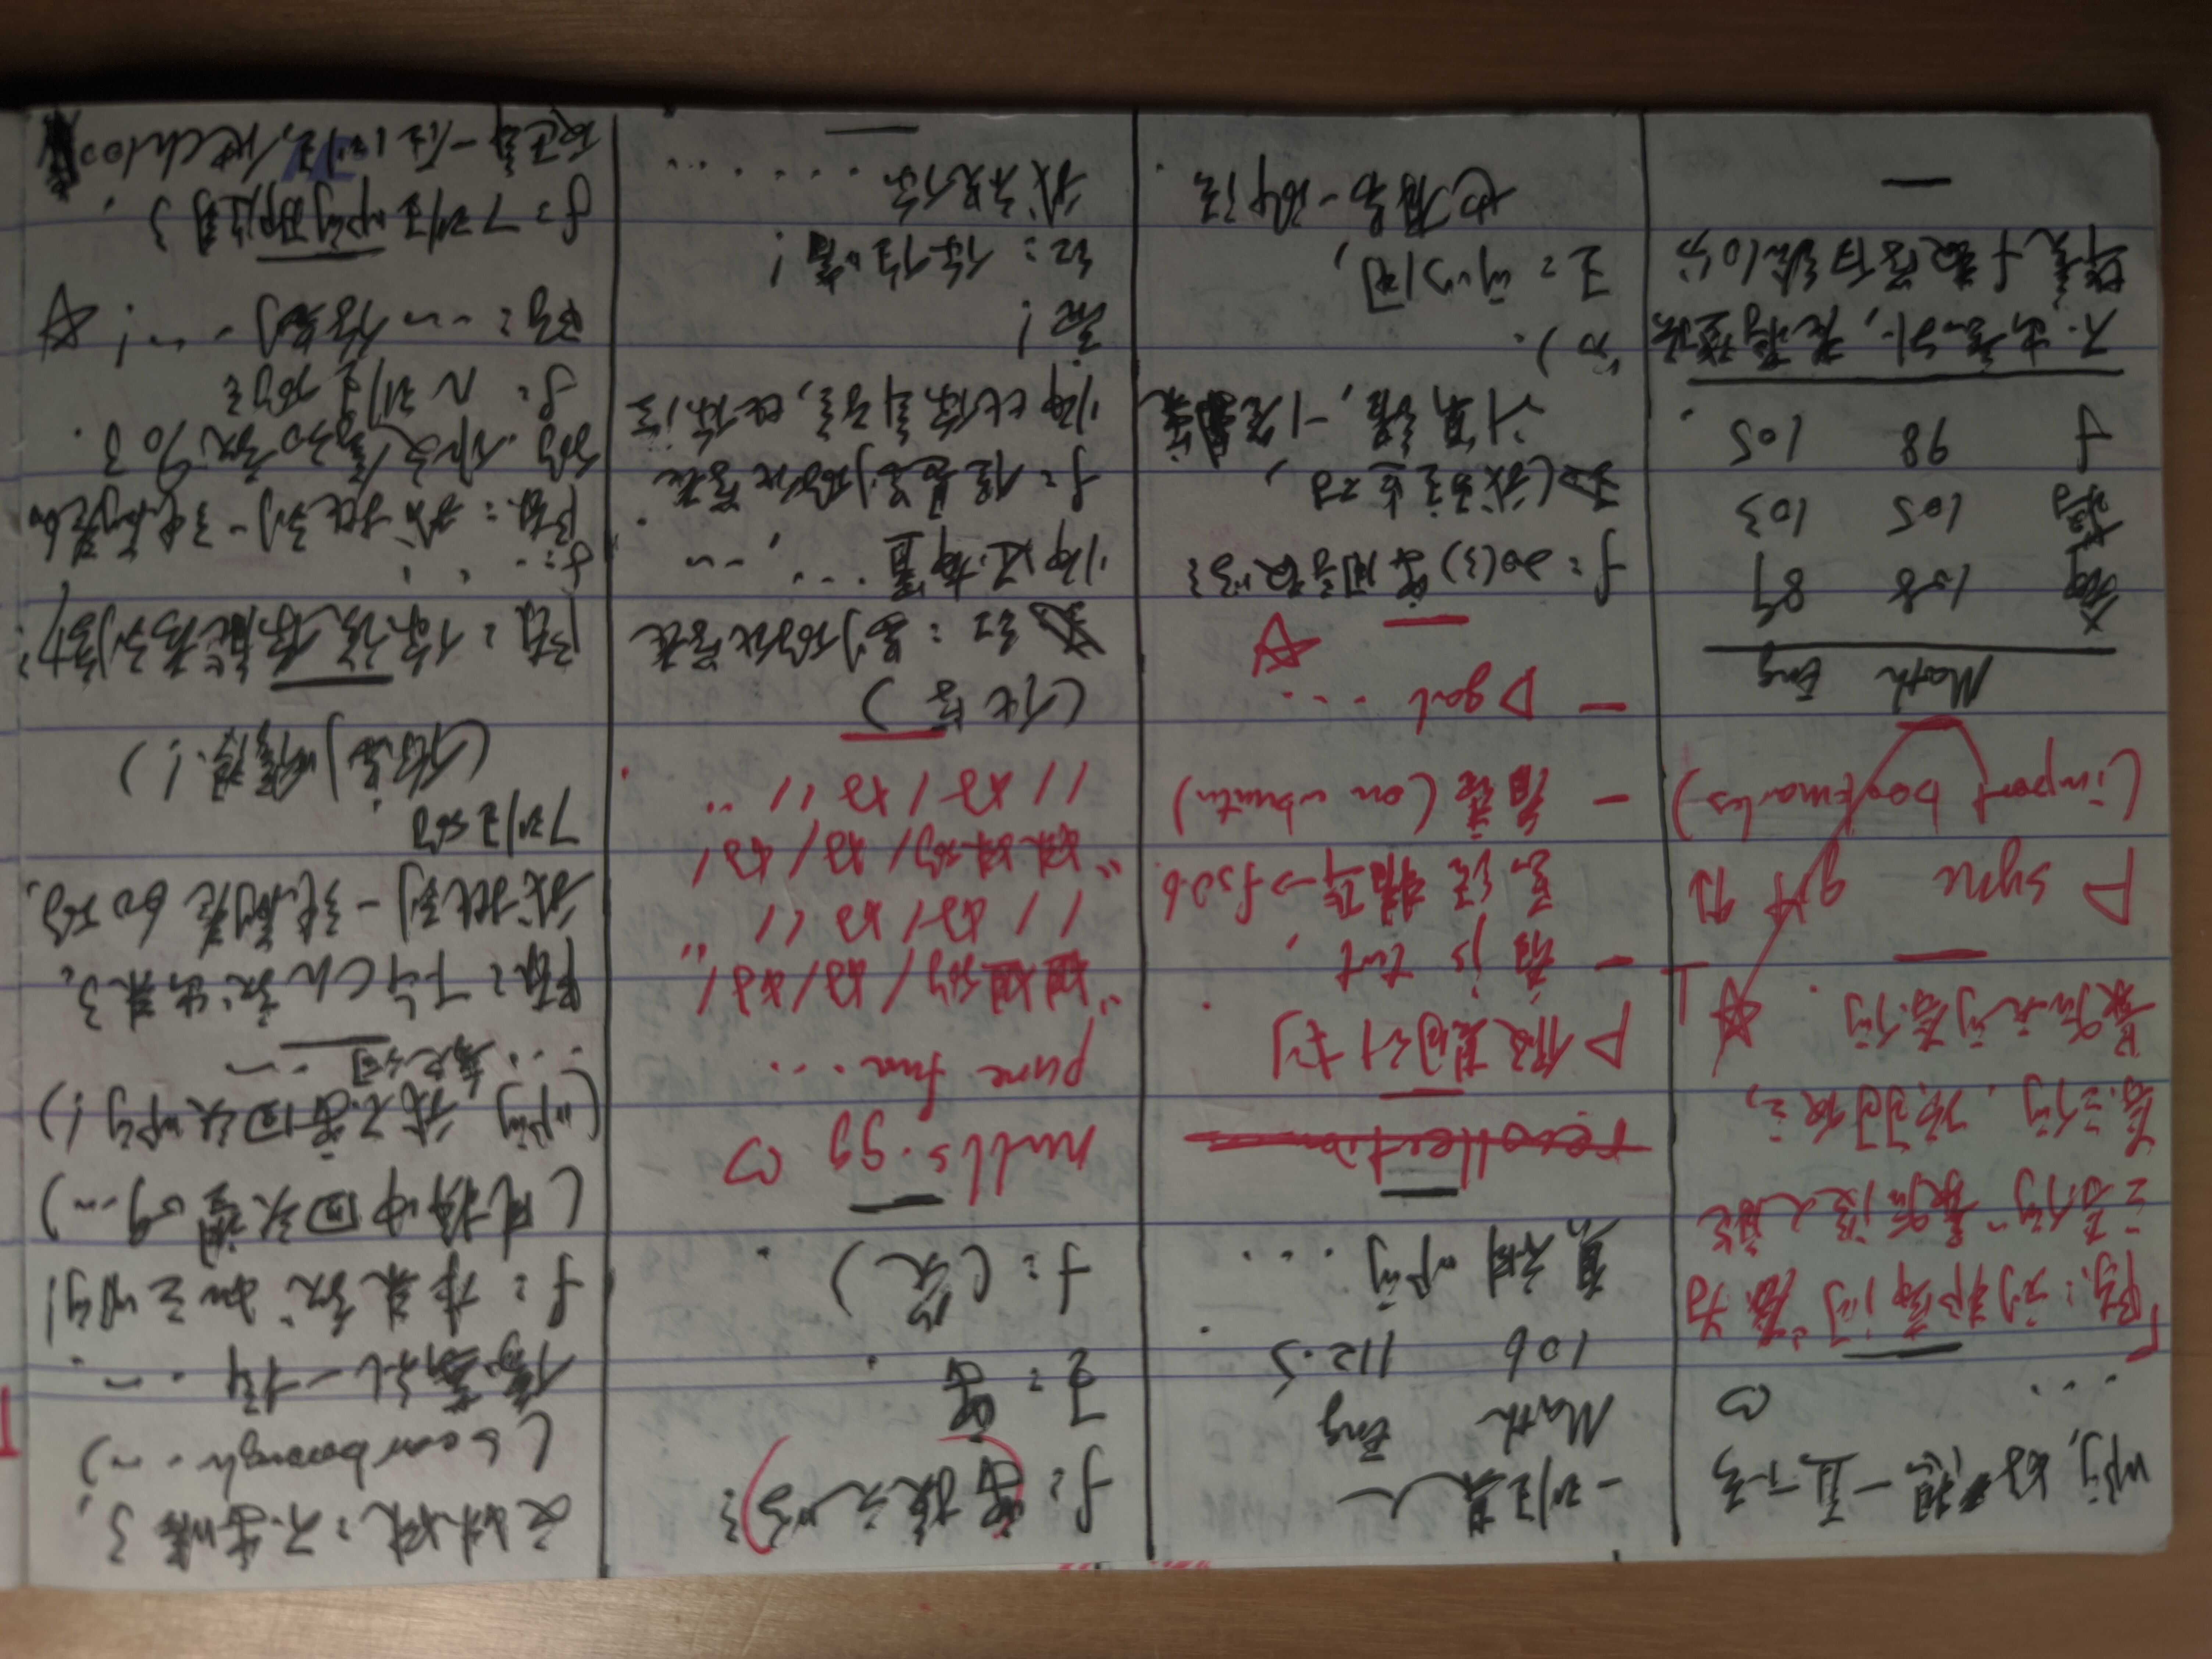 啊,好想一直下去
... ♡
「陈:刘邦常问“为之奈何”
最后没人能
奈之何.项羽反之,
最后无可奈何.
sync git
(import bookmarks)
Math Eng
108 89
蒋 105 103
f 98 105.
不出意外,老蒋登顶
毕竟f数学白给10分
一班某人
Math Eng
106 112.5.
真神啊...
recollection
假期计划.
- 看js tut,
总结精华→
- 看番(on ubuntu)
- gal ...
f:20(3)要用导数吗?
计算错,
分).
王:可以用,
也有另一种法.
f:要换元吗?
王:要.
f:(笑).
nulls.gg ♡
pure fun...
"姐姐的/好/好/
//好/好//"
"妹妹的/好/好/
//好/好//".
(化学)
红:别的化学老
师还布置...,...
f:但是别的化学老
师比你年轻,比你
高!
红:你住嘴!
我祝你......
文妹妹:不要嚎了,
(Scarborough...)
像 一样...
f:本来就 啊!
(电梯中回头望的...)
(啊,我不要回头啊!)
陈:下午Ch就出来了.
我批到一张前卷60的,
7班的.
(你别 !)
陈:你说你能考到 ?
f:...
陈:我批到一张前卷60
的.作文拿30就90了.
f:几班的?
陈:...你别...!
f:7班啊那 了.